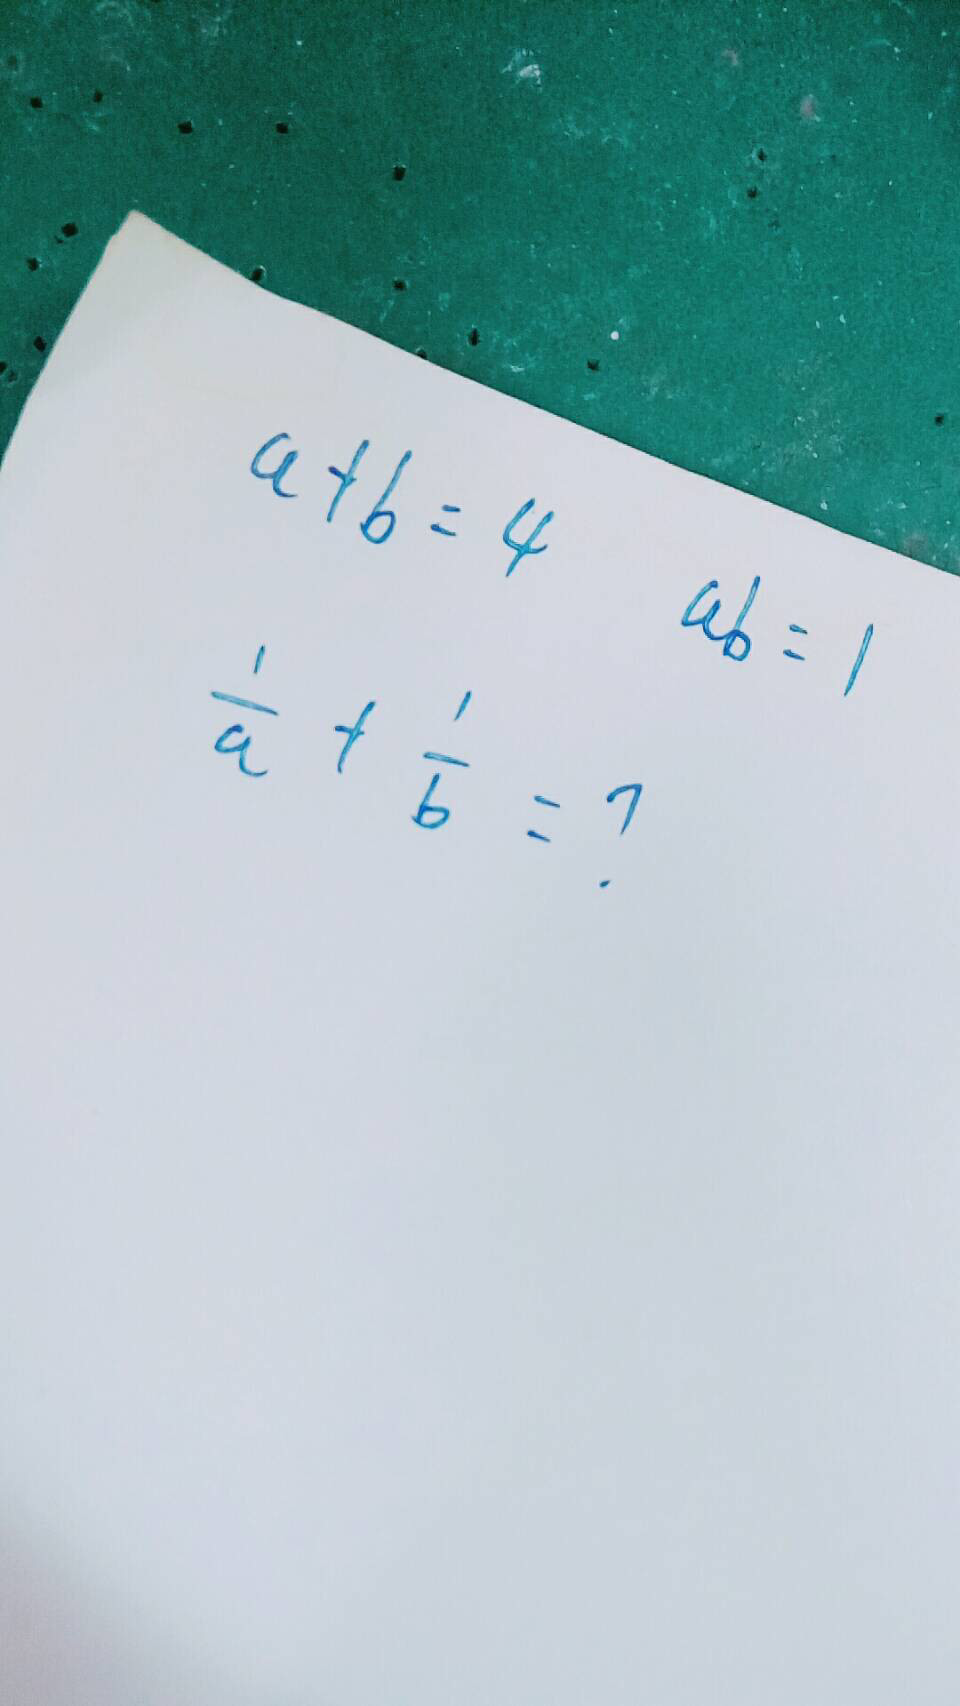 a+b=4 ab=1
1/a + 1/b = ?